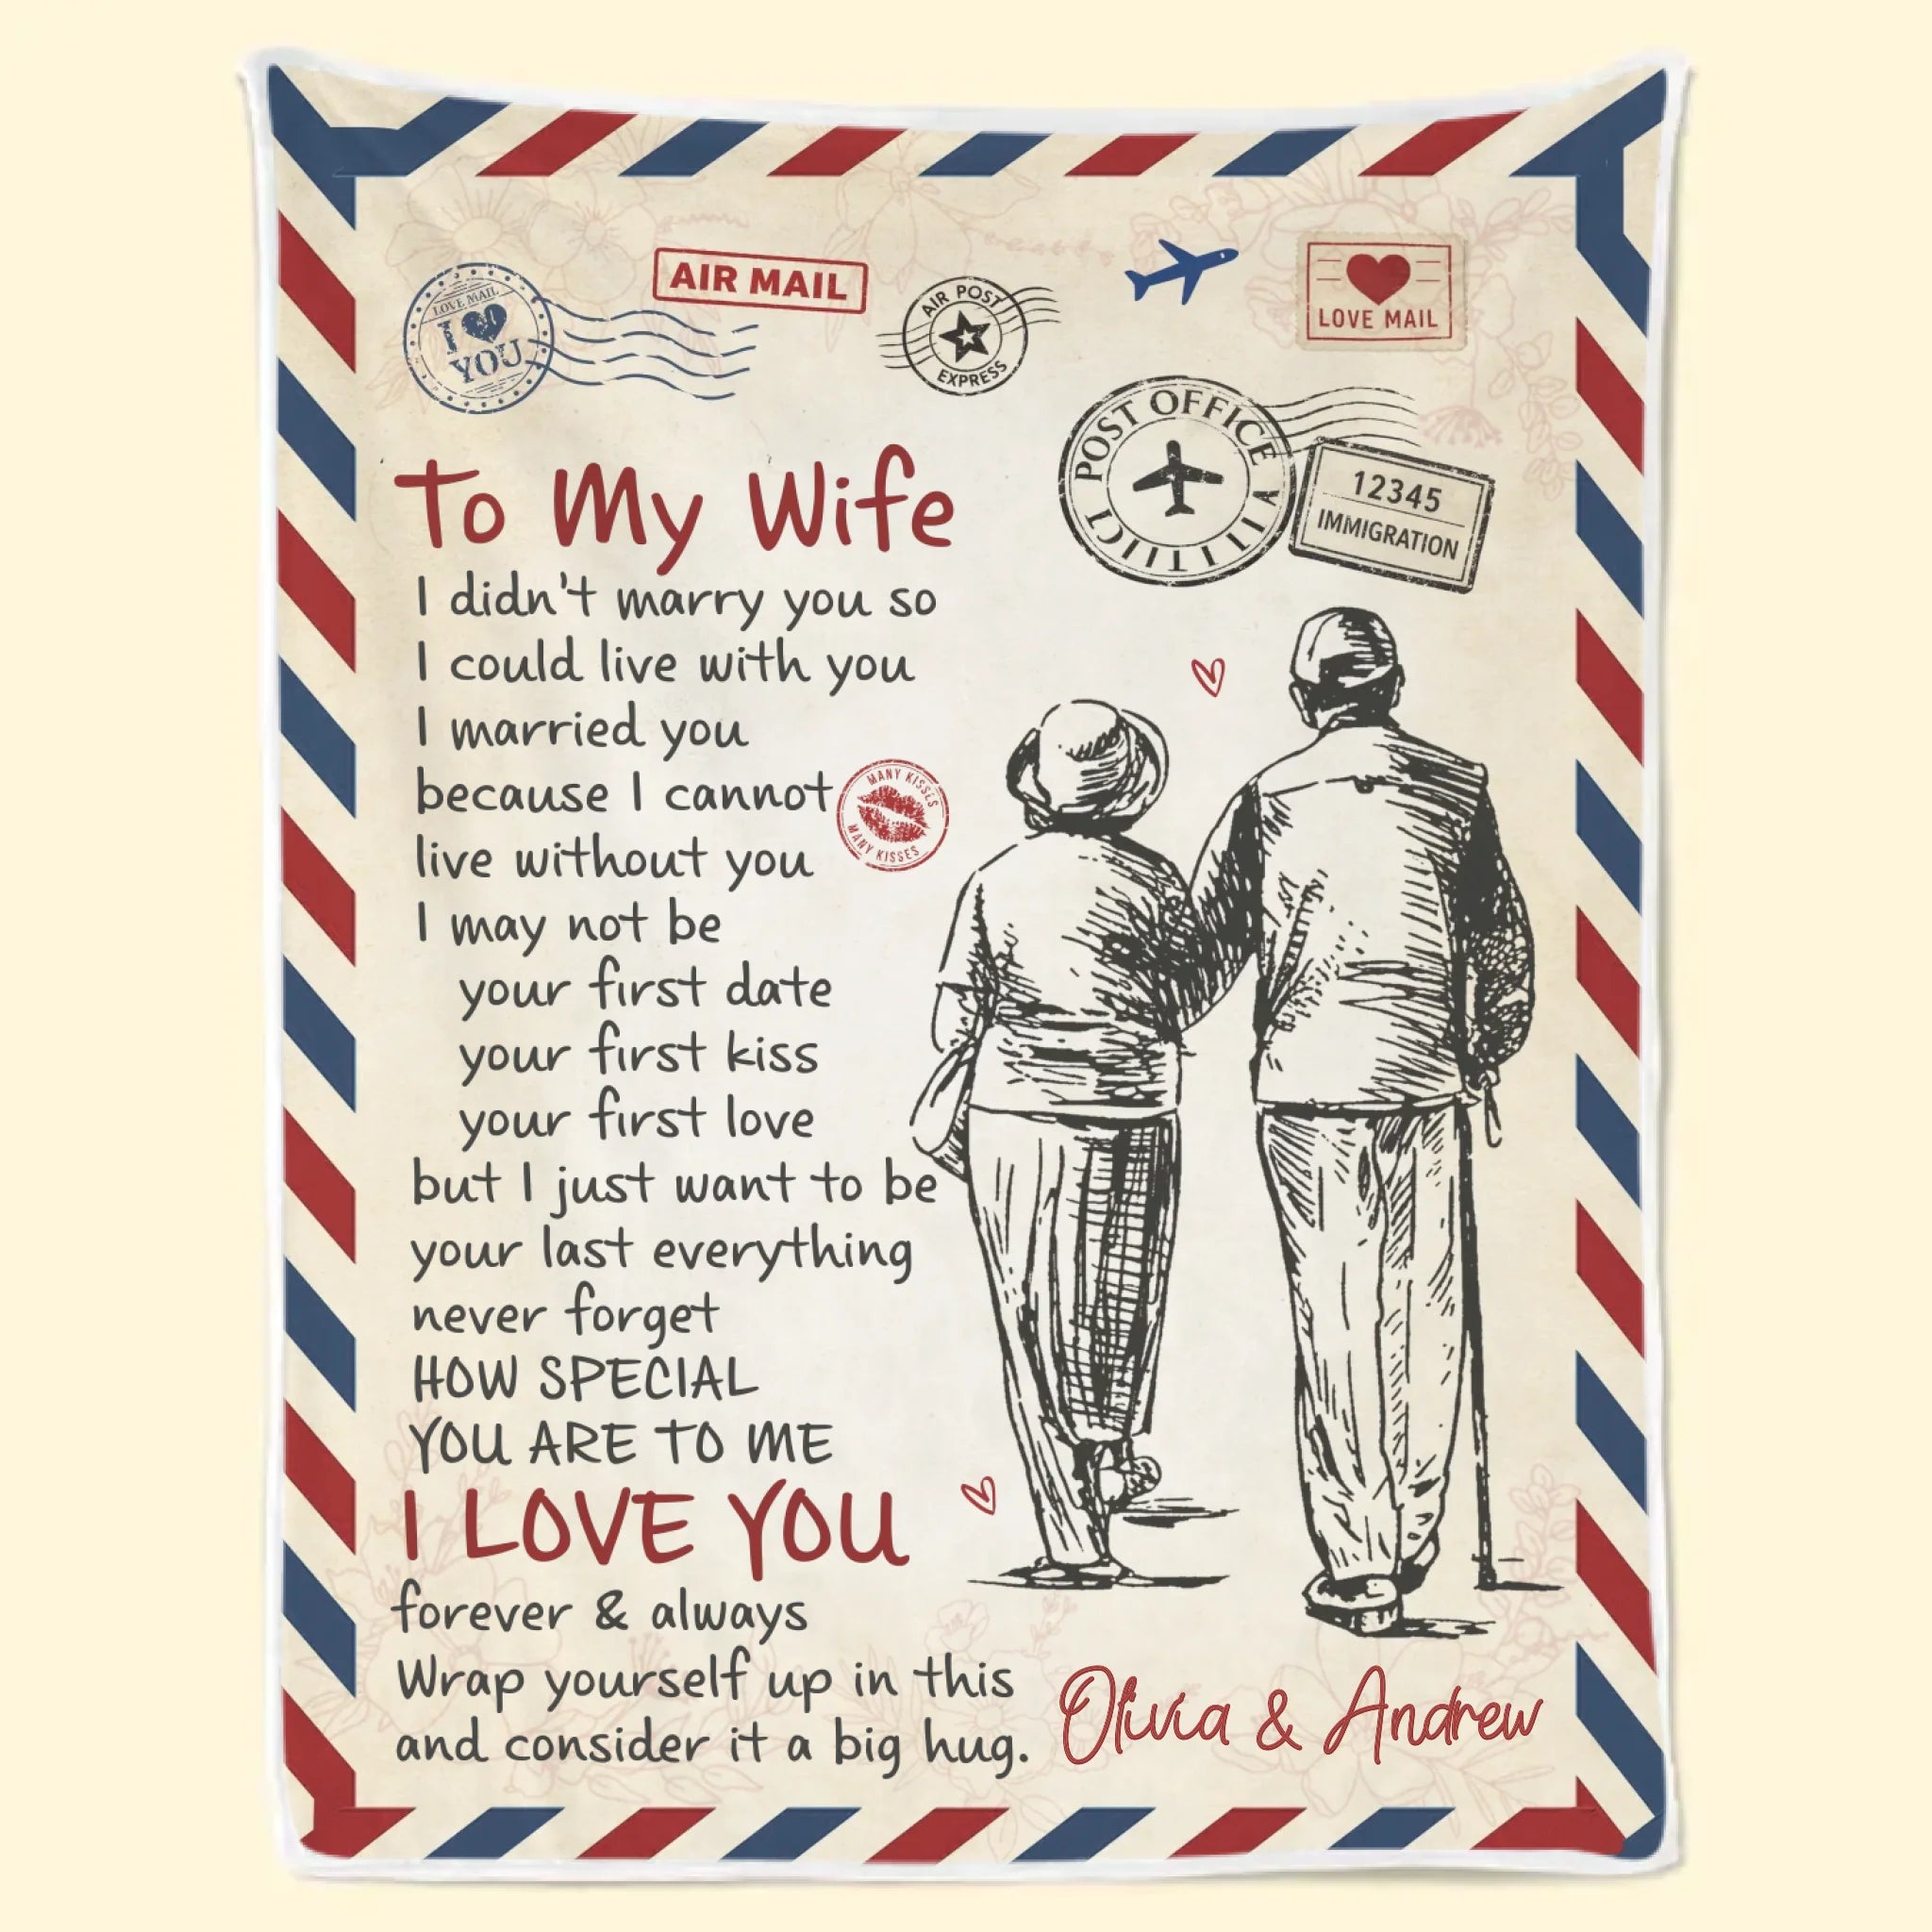 LOVE MAIL
I
YOU
AIR MAIL
AIR POST
EXPRESS
LOVE MAIL
POST OFFICE
12345
IMMIGRATION
To My Wife
I didn't marry you so
I could live with you
I married you
because I cannot
live without you
MANY KISSES
MANY KISSES
I may not be
your first date
your first kiss
your first love
but I just want to be
your last everything
never forget
HOW SPECIAL
YOU ARE TO ME
I LOVE YOU
forever & always
Wrap yourself up in this
and consider it a big hug.
Olivia & Andrew